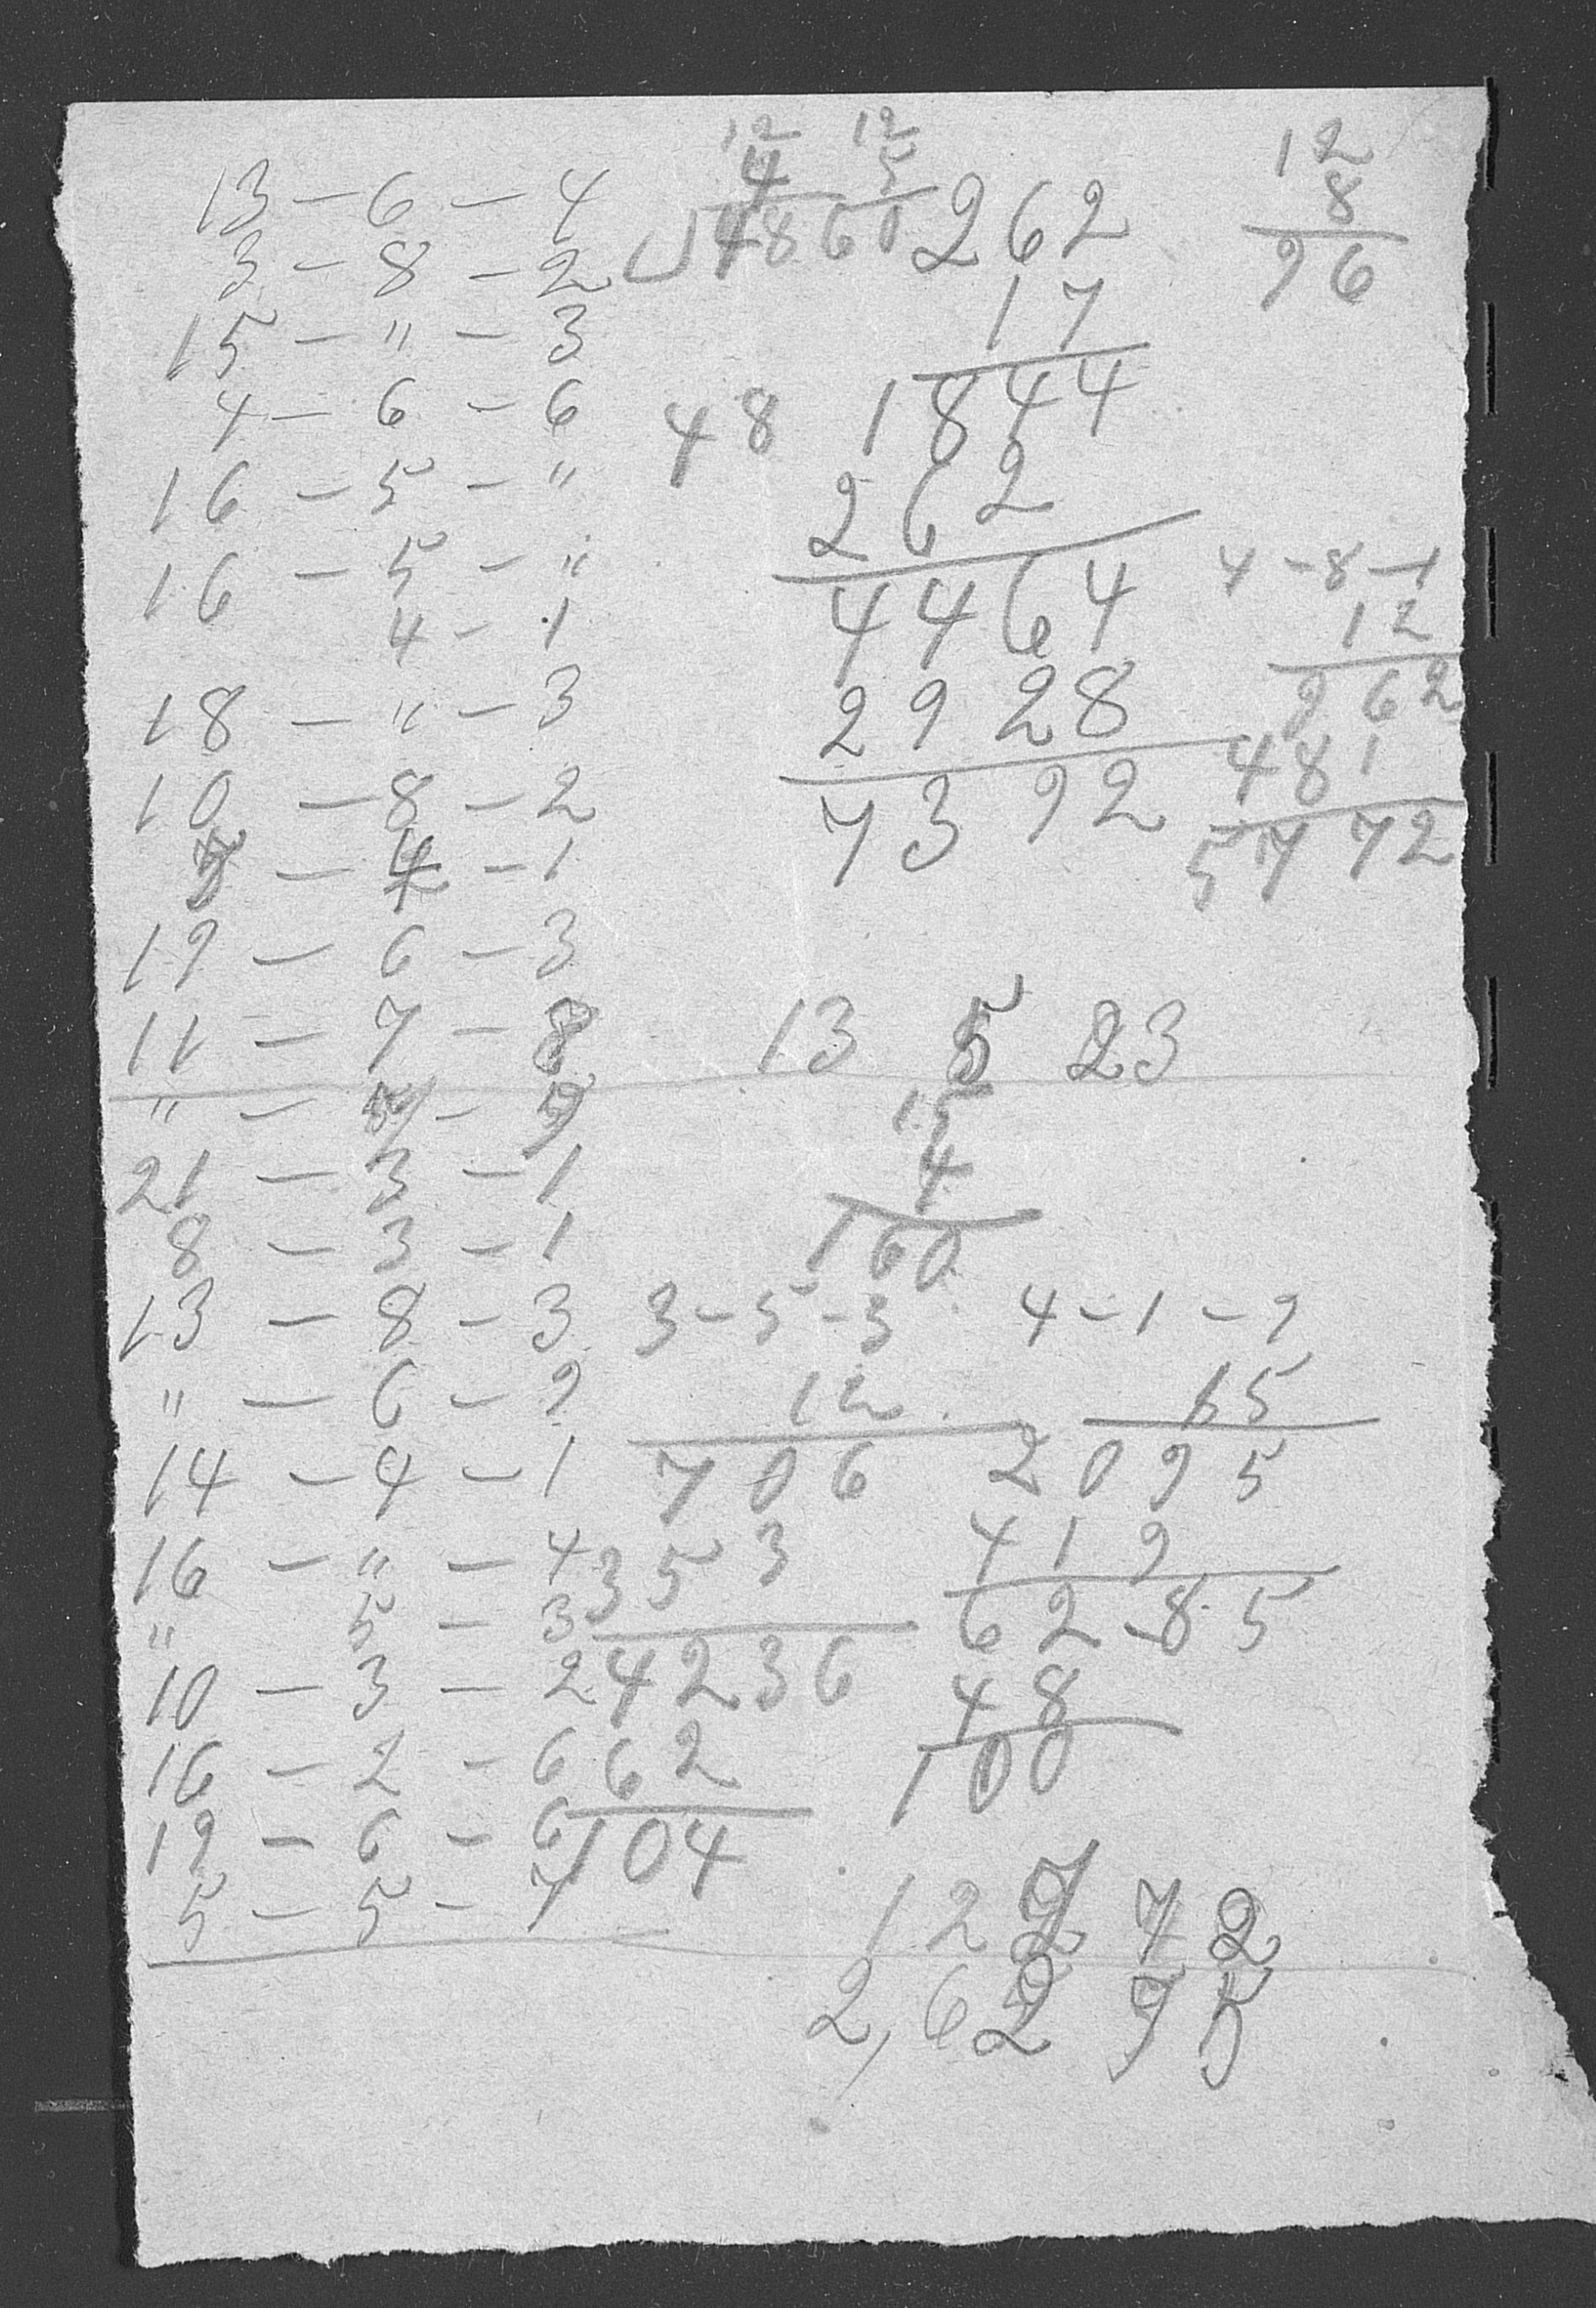 13 - 6 - 4
3 - 8 - 2
15 - " - 3
4 - 6 - 6
16 - 5 - "
16 - 5 - "
4 - 1
18 - " - 3
10 - 8 - 2
- 4 - 1
19 - 6 - 3
11 - 7 - 8
" - - 9
21 - 3 - 1
8 - 3 - 1
13 - 8 - 3
" - 6 - 9
14 - 4 - 1
16 - " - 4
" 5 - 3
10 - 3 - 2
16 - 2 - 6
19 - 6 - 6
5 - 5 - 7
12 12
4 5
48 60
262
17
1844
262
4464
2928
7392
48
12
8
96
4 - 8 - 1
12
962
481
5772
13 5 23
15
4
160
3 - 5 - 3
12
706
353
4236
62
104
4 - 1 - 9
15
2095
419
62-85
48
100
12 72
2,62 95